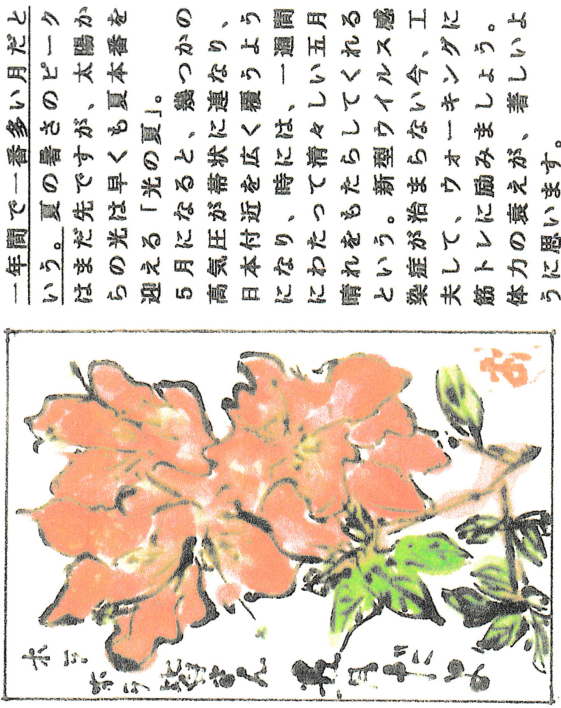 一年間で一番多い月だと
いう。夏の暑さのピーク
はまだ先ですが、太陽か
らの光は早くも夏本番を
迎える「光の夏」。
5月になると、幾つかの
高気圧が帯状に連なり、
日本付近を広く覆うよう
になり、時には、一週間
にわたって清々しい五月
晴れをもたらしてくれる
という。新型ウィルス感
染症が治まらない今、工
夫して、ウォーキングに
筋トレに励みましょう。
体力の衰えが、著しいよ
うに思います。